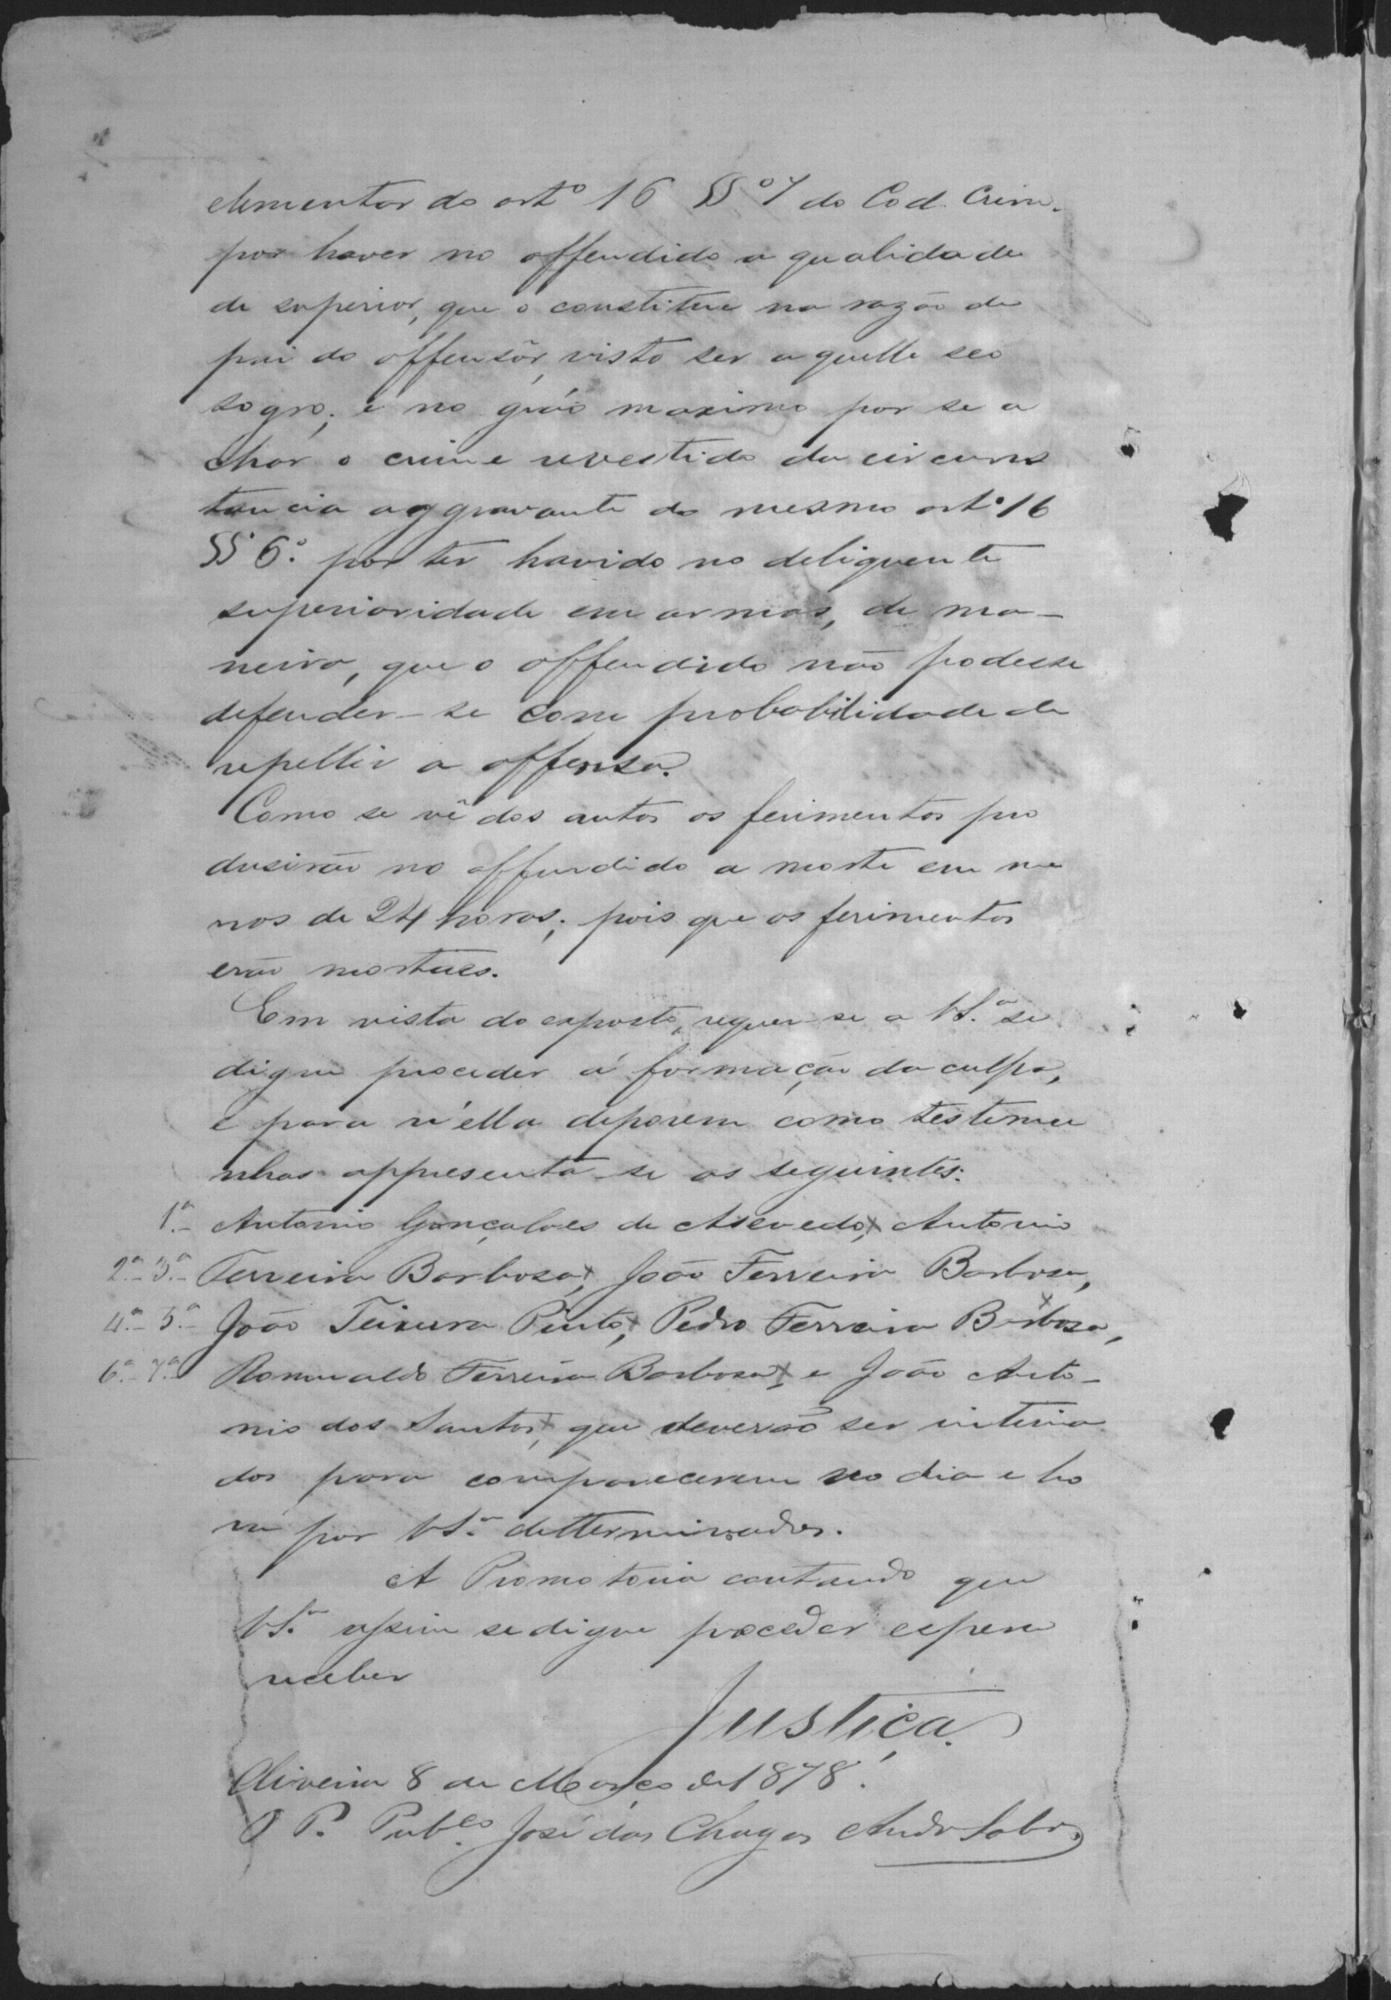 elementar do artº 16 §§º 7 do Cod. Crim.
por haver no offendido a qualidade
de superior, que o constitue na razão de
pai do offensôr, visto ser aquelle seo
sogro; e no gráo maximo por se a
char o crime revestido da circuns
tancia aggravante do mesmo artº 16
§§ 6º. por ter havido no deliquente
superioridade em armas, de ma-
neira, que o offendido não podesse
defender-se com probabilidade de
repellir a offensa.
Como se vê dos autos os ferimentos pro
dusirão no offendido a morte em me
nos de 24 horas; pois que os ferimentos
erão mortaes.
Em vista do exposto, requer-se a VSª. se
digne proceder á formação da culpa,
e para n'ella deporem como testemu
nhas appresenta-se os seguintes:
1ª- Antonio Gonçalves de Asevedo, Antonio
2ª- 3ª- Ferreira Barbosa, João Ferreira Barbosa,
4ª- 5ª- João Teixeira Pinto, Pedro Ferreira Barbosa,
6ª- 7ª- Romualdo Ferreira Barbosa, e João Anto-
nio dos Santos, que deverão ser intima
dos para comparecerem no dia e ho
ra por VSª. determinados.
A Promotoria contando que
VSª. assim se digne proceder espera
receber
Justiça.
Oliveira 8 de Março de 1878.
O P. Pubco. José das Chagas Andr Sobrº.